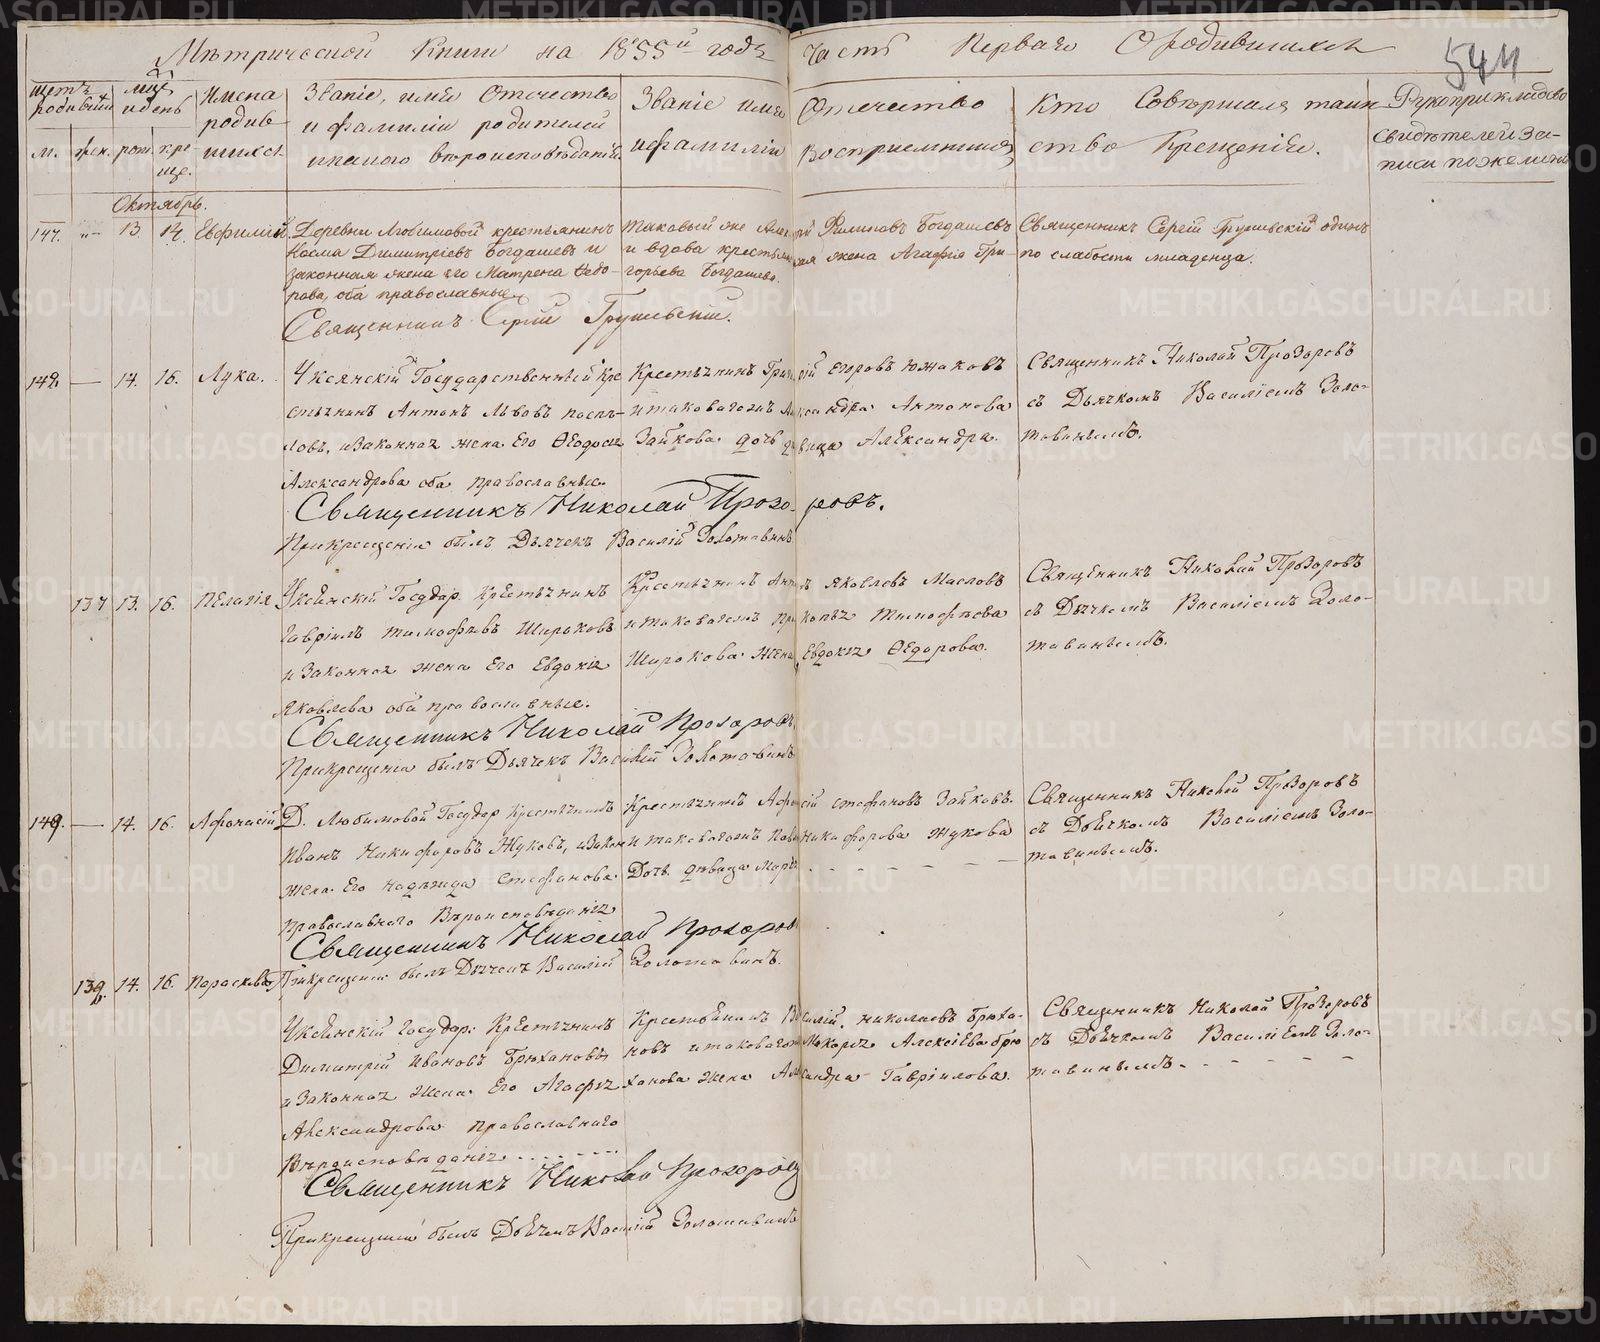 Метрической Книги на 1855й годъ Часть Перваго О родившихся
544
Щетъ родивших
Мцъ и день
Имена родившихся
Званіе, имя Отечество и фамиліи родителей и какого вероисповѣданія
Званіе имя Отечество и фамиліи Воспріемниковъ
Кто Совершалъ таинство Крещенія.
Рукоприкладство свидѣтелей записи по желанію
м. жен. рож. кре ще.
Октябрь.
147. — 13. 14. Евфимій
Деревни Любимовой крестьянинъ
Косма Димитріевъ Богдашевъ и
законная жена его Матрена Ѳедо-
рова, оба православные
Таковый же Филиповъ Богдашевъ
и вдова крестьянская жена Агафія Гри-
горьева Богдашева.
Священникъ Сергій Грушевскій одинъ
по слабости младенца.
Священникъ Сергій Грушевскій.
148. — 14. 16. Лука.
Уксянскій Государственный Кре
стьянинъ Антонъ Львовъ Поспѣ-
ловъ, и Законная жена Его Ѳеодосія
Александрова оба православные
Крестьянинъ Григорій Егоровъ Южаковъ
и таковагожъ Александра Антонова
Зайкова дочь дѣвица Александра.
Священникъ Николай Прозоровъ
съ Дьячкомъ Василіемъ Золо-
тавинымъ.
Священникъ Николай Прозоровъ.
При крещеніи былъ Дьячекъ Василій Золотавинъ
137 13. 16. Пелагія
Уксянскій Государ. Крестьянинъ
Гавріилъ Тимофѣевъ Широковъ
и Законная жена Его Евдокія
Яковлева оба православные.
Крестьянинъ Яковлевъ Масловъ
и таковагожъ Прокопья Тимофѣева
Широкова жена Евдокія Ѳедорова.
Священникъ Николай Прозоровъ
съ Дьячкомъ Василіемъ Золо-
тавинымъ.
Священникъ Николай Прозоровъ
При крещеніи былъ Дьячекъ Василій Золотавинъ
149. — 14. 16. Афонасій
Д. Любимовой Государ Крестьянинъ
Иванъ Никифоровъ Жуковъ, и Закон
жена Его Надежда Стефанова
Православнаго Вѣроисповѣданія
Крестьянинъ Афонасій Стефановъ Зайковъ.
и таковагожъ Никифорова Жукова
Дочь дѣвица Марья
Священникъ Николай Прозоровъ
съ Дьячкомъ Василіемъ Золо-
тавинымъ.
Священникъ Николай Прозоровъ
При крещеніи былъ Дьячекъ Василій Золотавинъ.
138. 14. 16. Параскева
Уксянскій Государ: Крестьянинъ
Димитрій Ивановъ Брюхановъ
и Законная жена Его Агафія
Александрова православнаго
Вѣроисповѣданія
Крестьянинъ Василій Николаевъ Брюха-
новъ и таковагожъ Макара Алексіева Брю
ханова жена Александра Гавріилова.
Священникъ Николай Прозоровъ
съ Дьячкомъ Василіемъ Золо-
тавинымъ.
Священникъ Николай Прозоровъ
При крещеніи былъ Дьячекъ Василій Золотавинъ
METRIKI.GASO-URAL.RU